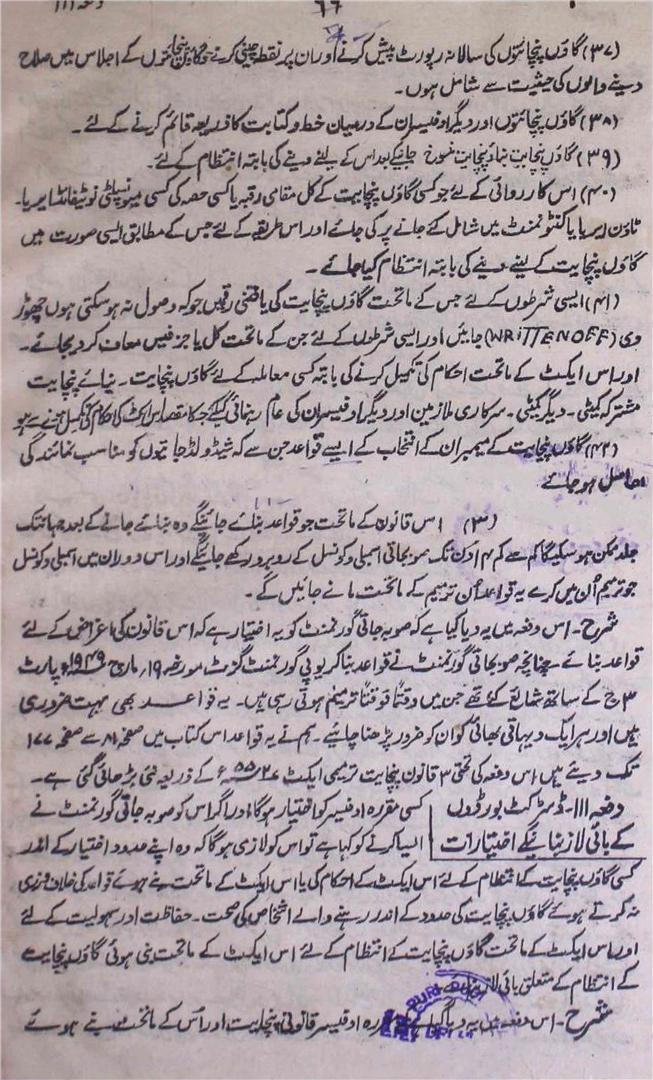 دفعہ ۱۱۱
۶۶
(۳۷) گاؤں پنچائتوں کی سالانہ رپورٹ پیش کرنے اور ان پر نقطہ چینی کرنے پنچائتوں کے اجلاس میں صلاح
دینے والوں کی حیثیت سے شامل ہوں۔
(۳۸) گاؤں پنچائتوں اور دیگر اوفیسران کے درمیان خط و کتابت کا ذریعہ قائم کرنے کے لئے۔
(۳۹) گاؤں پنچایت نیاؤ پنچایت منسوخ جانیکے بعد اس کے لینے دینے کی بابتہ انتظام کے لئے۔
(۴۰) اس کارروائی کے لئے جو کسی گاؤں پنچایت کے کل مقامی رقبہ یا کسی حصہ کی کسی میونسپلٹی نوٹیفائڈ ایریا۔
ٹاؤن ایریا یا کنٹونمنٹ میں شامل کئے جانے پر کی جائے اور اس طریقہ کے لئے جس کے مطابق ایسی صورت میں
گاؤں پنچایت کے لینے دینے کی بابتہ انتظام کیا جائے۔
(۴۱) ایسی شرطوں کے لئے جس کے ماتحت گاؤں پنچایت کی یافتنی رقمیں جو کہ وصول نہ ہو سکتی ہوں چھوڑ
دی (WRITTEN OFF) جائیں اور ایسی شرطوں کے لئے جن کے ماتحت کل یا جز فیس معاف کر دیجائے۔
اور اس ایکٹ کے ماتحت احکام کی تکمیل کرنے کی بابتہ کسی معاملہ کے لئے گاؤں پنچایت۔ نیائے پنچایت
مشترکہ کمیٹی۔ دیگر کمیٹی۔ سرکاری ملازمین اور دیگر اوفیسران کی عام رہنمائی کیلئے جسکا مقصد اس ایکٹ کی احکام کی تکمیل ہو
(۴۲) گاؤں پنچایت کے میمبران کے انتخاب کے ایسے قواعد جن سے کہ شیڈولڈ جاتیوں کو مناسب نمائندگی
حاصل ہو جائے
(۳) اس قانون کے ماتحت جو قواعد بنائے جائینگے وہ بنائے جانے کے بعد جہانتک
جلد ممکن ہو سکیگا کم سے کم ۱۴ دن تک صوبجاتی اسمبلی و کونسل کے روبرو رکھے جائیگے اور اس دوران میں اسمبلی و کونسل
جو ترمیم اُن میں کرے یہ قواعد اُن ترمیم کے ماتحت مانے جائیں گے۔
شرح۔ اس دفعہ میں یہ دیا گیا ہے کہ صوبہ جاتی گورنمنٹ کو یہ اختیار ہے کہ اس قانون کی اغراض کے لئے
قواعد بنائے۔ چنانچہ صوبجاتی گورنمنٹ نے قواعد بنا کر یو پی گورنمنٹ گزٹ مورخہ ۱۹؍ مارچ ۱۹۴۹ء پارٹ
۳ج کے ساتھ شائع کئے تھے جن میں وقتاً فوقتاً ترمیم ہوتی رہی ہیں۔ یہ قواعد بھی بہت ضروری
ہیں اور ہر ایک دیہاتی بھائی کو ان کو ضرور پڑھنا چاہیئے۔ ہم نے یہ قواعد اس کتاب میں صفحہ ۸۱ سے صفحہ ۱۷۷
تک دیئے ہیں اس دفعہ کی تحتی ۳ قانون پنچایت ترمیمی ایکٹ ۲۷/۵۵ء کے ذریعہ نئی بڑھائی گئی ہے۔
دفعہ ۱۱۱۔ ڈسٹرکٹ بورڈوں
کے بائی لاز بنانیکے اختیارات
کسی مقررہ اوفیسر کو اختیار ہوگا اور اگر اس کو صوبہ جاتی گورنمنٹ نے
ایسا کرنے کو کہا ہے تو اس کو لازمی ہوگا کہ وہ اپنے حدود اختیار کے اندر
کسی گاؤں پنچایت کے انتظام کے لئے اس ایکٹ کے احکام کی یا اس ایکٹ کے ماتحت بنے ہوئے قواعد کی خلاف ورزی
نہ کرتے ہوئے گاؤں پنچایت کی حدود کے اندر رہنے والے اشخاص کی صحت۔ حفاظت اور سہولیت کے لئے
اور اس ایکٹ کے ماتحت گاؤں پنچایت کے انتظام کے لئے اس ایکٹ کے ماتحت بنی ہوئی گاؤں پنچایت
کے انتظام کے متعلق بائی لاز
شرح۔ اس دفعہ میں یہ دیا گیا ہے مقررہ اوفیسر قانونی پنچایت اور اس کے ماتحت بنے ہوئے